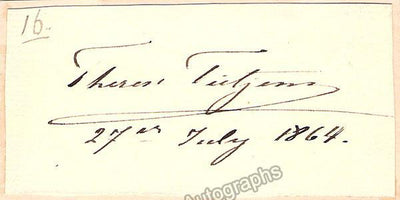 16.
Therese Tietjens
27th July 1864.
Autographs